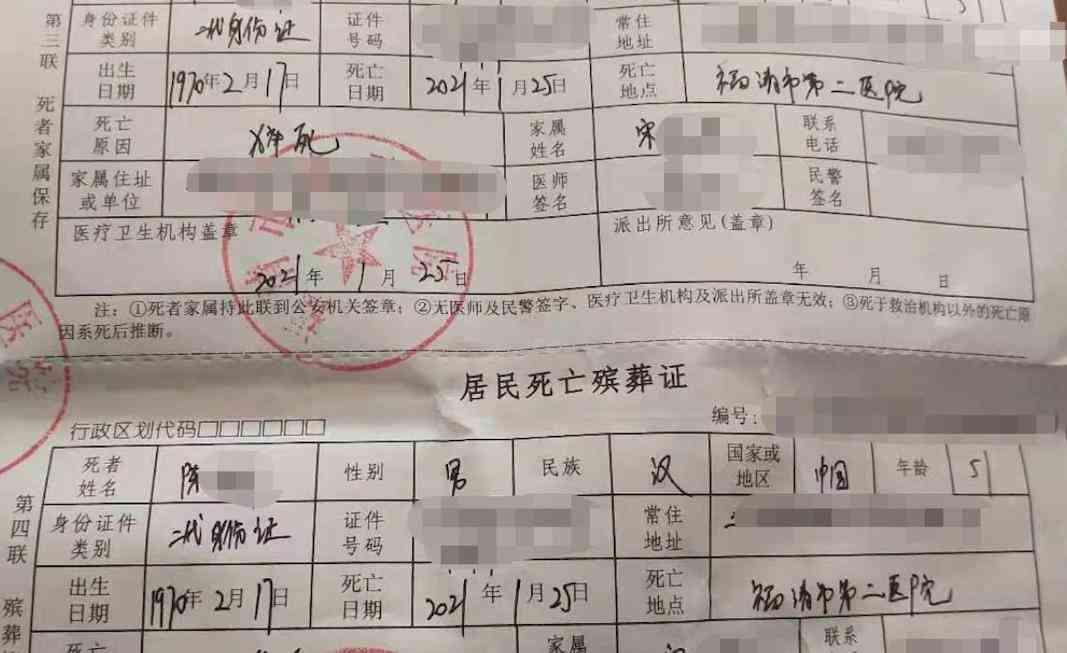 第三联 死者家属保存
身份证件类别 二代身份证 证件号码 常住地址 5
出生日期 1970年2月17日 死亡日期 2021年1月25日 死亡地点 福清市第二医院
死亡原因 猝死 家属姓名 宋 联系电话
家属住址或单位 医师签名 民警签名
医疗卫生机构盖章 派出所意见(盖章)
2021年1月25日 年 月 日
注：①死者家属持此联到公安机关签章；②无医师及民警签字、医疗卫生机构及派出所盖章无效；③死于救治机构以外的死亡原
因系死后推断。
医院
居民死亡殡葬证
编号:
行政区划代码□□□□□□
第四联 殡葬
死者姓名 陈 性别 男 民族 汉 国家或地区 中国 年龄 51
身份证件类别 二代身份证 证件号码 常住地址
出生日期 1970年2月17日 死亡日期 2021年1月25日 死亡地点 福清市第二医院
死亡 家属 联系